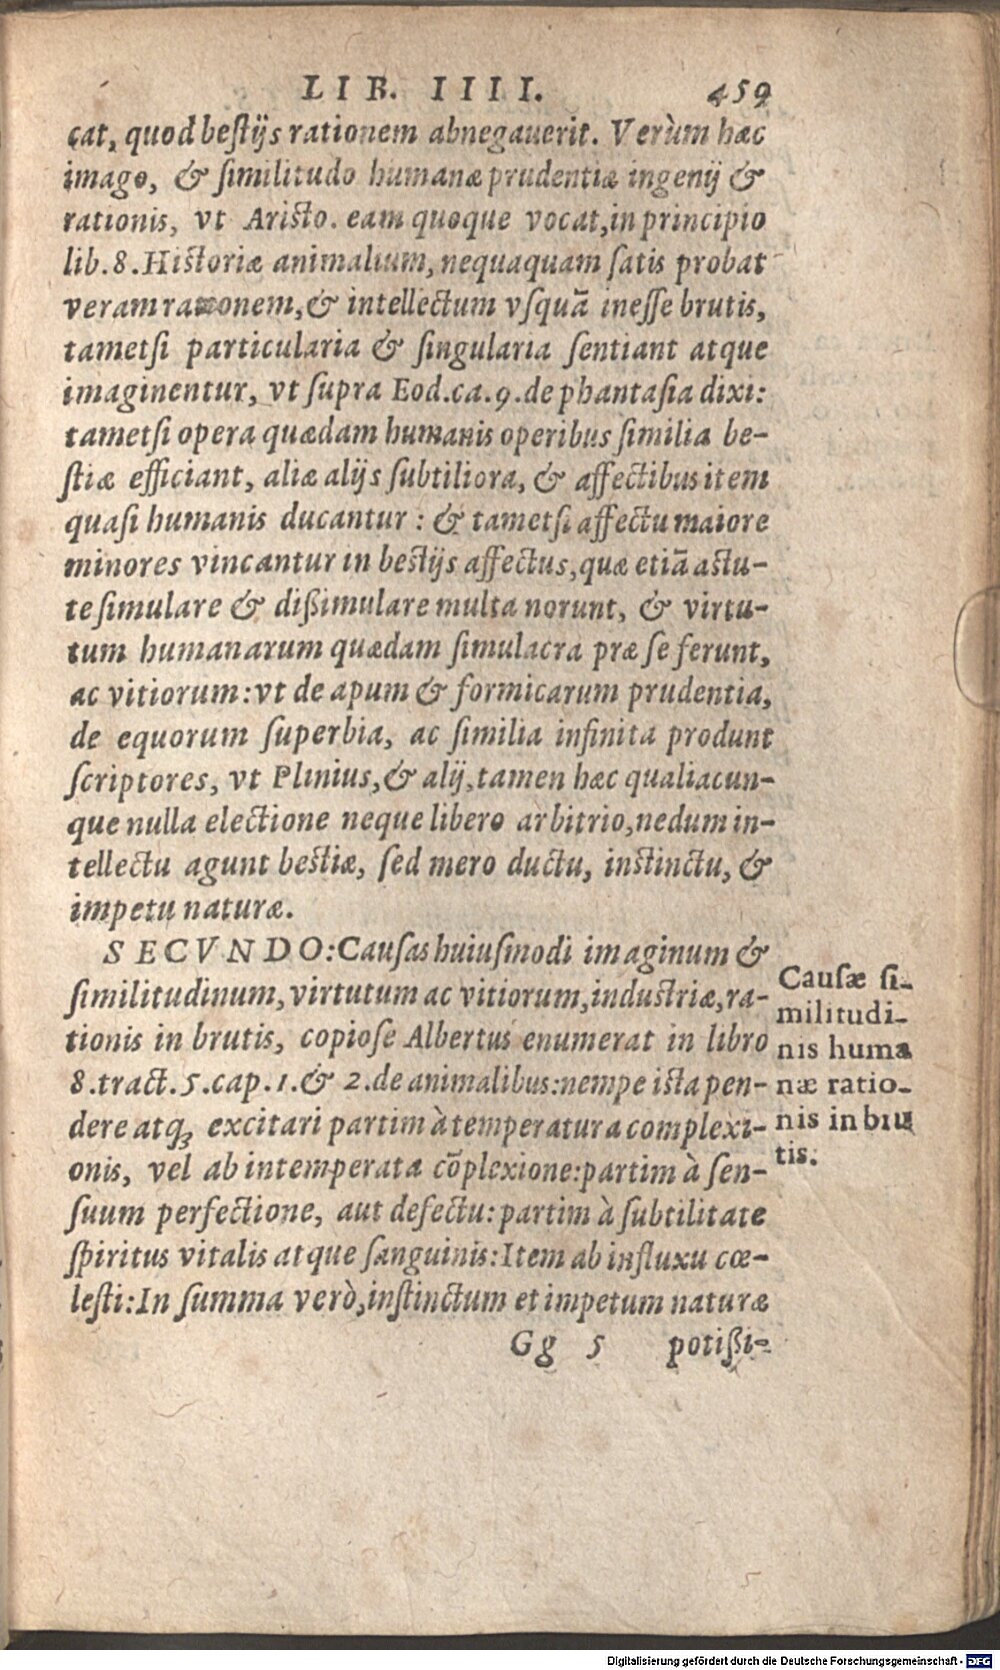 LIB. IIII. 459
cat, quod bestijs rationem abnegauerit. Verùm hæc
imago, & similitudo humanæ prudentiæ ingenij &
rationis, vt Aristo. eam quoque vocat, in principio
lib. 8. Historiæ animalium, nequaquam satis probat
veram rationem, & intellectum vsquã inesse brutis,
tametsi particularia & singularia sentiant atque
imaginentur, vt supra Eod. ca. 9. de phantasia dixi:
tametsi opera quædam humanis operibus similia be-
stiæ efficiant, aliæ alijs subtiliora, & affectibus item
quasi humanis ducantur: & tametsi affectu maiore
minores vincantur in bestijs affectus, quæ etiã astu-
te simulare & dißimulare multa norunt, & virtu-
tum humanarum quædam simulacra præ se ferunt,
ac vitiorum: vt de apum & formicarum prudentia,
de equorum superbia, ac similia infinita produnt
scriptores, vt Plinius, & alij, tamen hæc qualiacun-
que nulla electione neque libero arbitrio, nedum in-
tellectu agunt bestiæ, sed mero ductu, instinctu, &
impetu naturæ.
SECVNDO: Causas huiusmodi imaginum &
similitudinum, virtutum ac vitiorum, industriæ, ra-
tionis in brutis, copiose Albertus enumerat in libro
8. tract. 5. cap. 1. & 2. de animalibus: nempe ista pen-
dere atq; excitari partim à temperatura complexi-
onis, vel ab intemperata cõplexione: partim à sen-
suum perfectione, aut defectu: partim à subtilitate
spiritus vitalis atque sanguinis: Item ab influxu cœ-
lesti: In summa verò, instinctum et impetum naturæ
Gg 5 potißi-
Causæ si-
militudi-
nis huma
næ ratio-
nis in bru
tis.
Digitalisierung gefördert durch die Deutsche Forschungsgemeinschaft - DFG